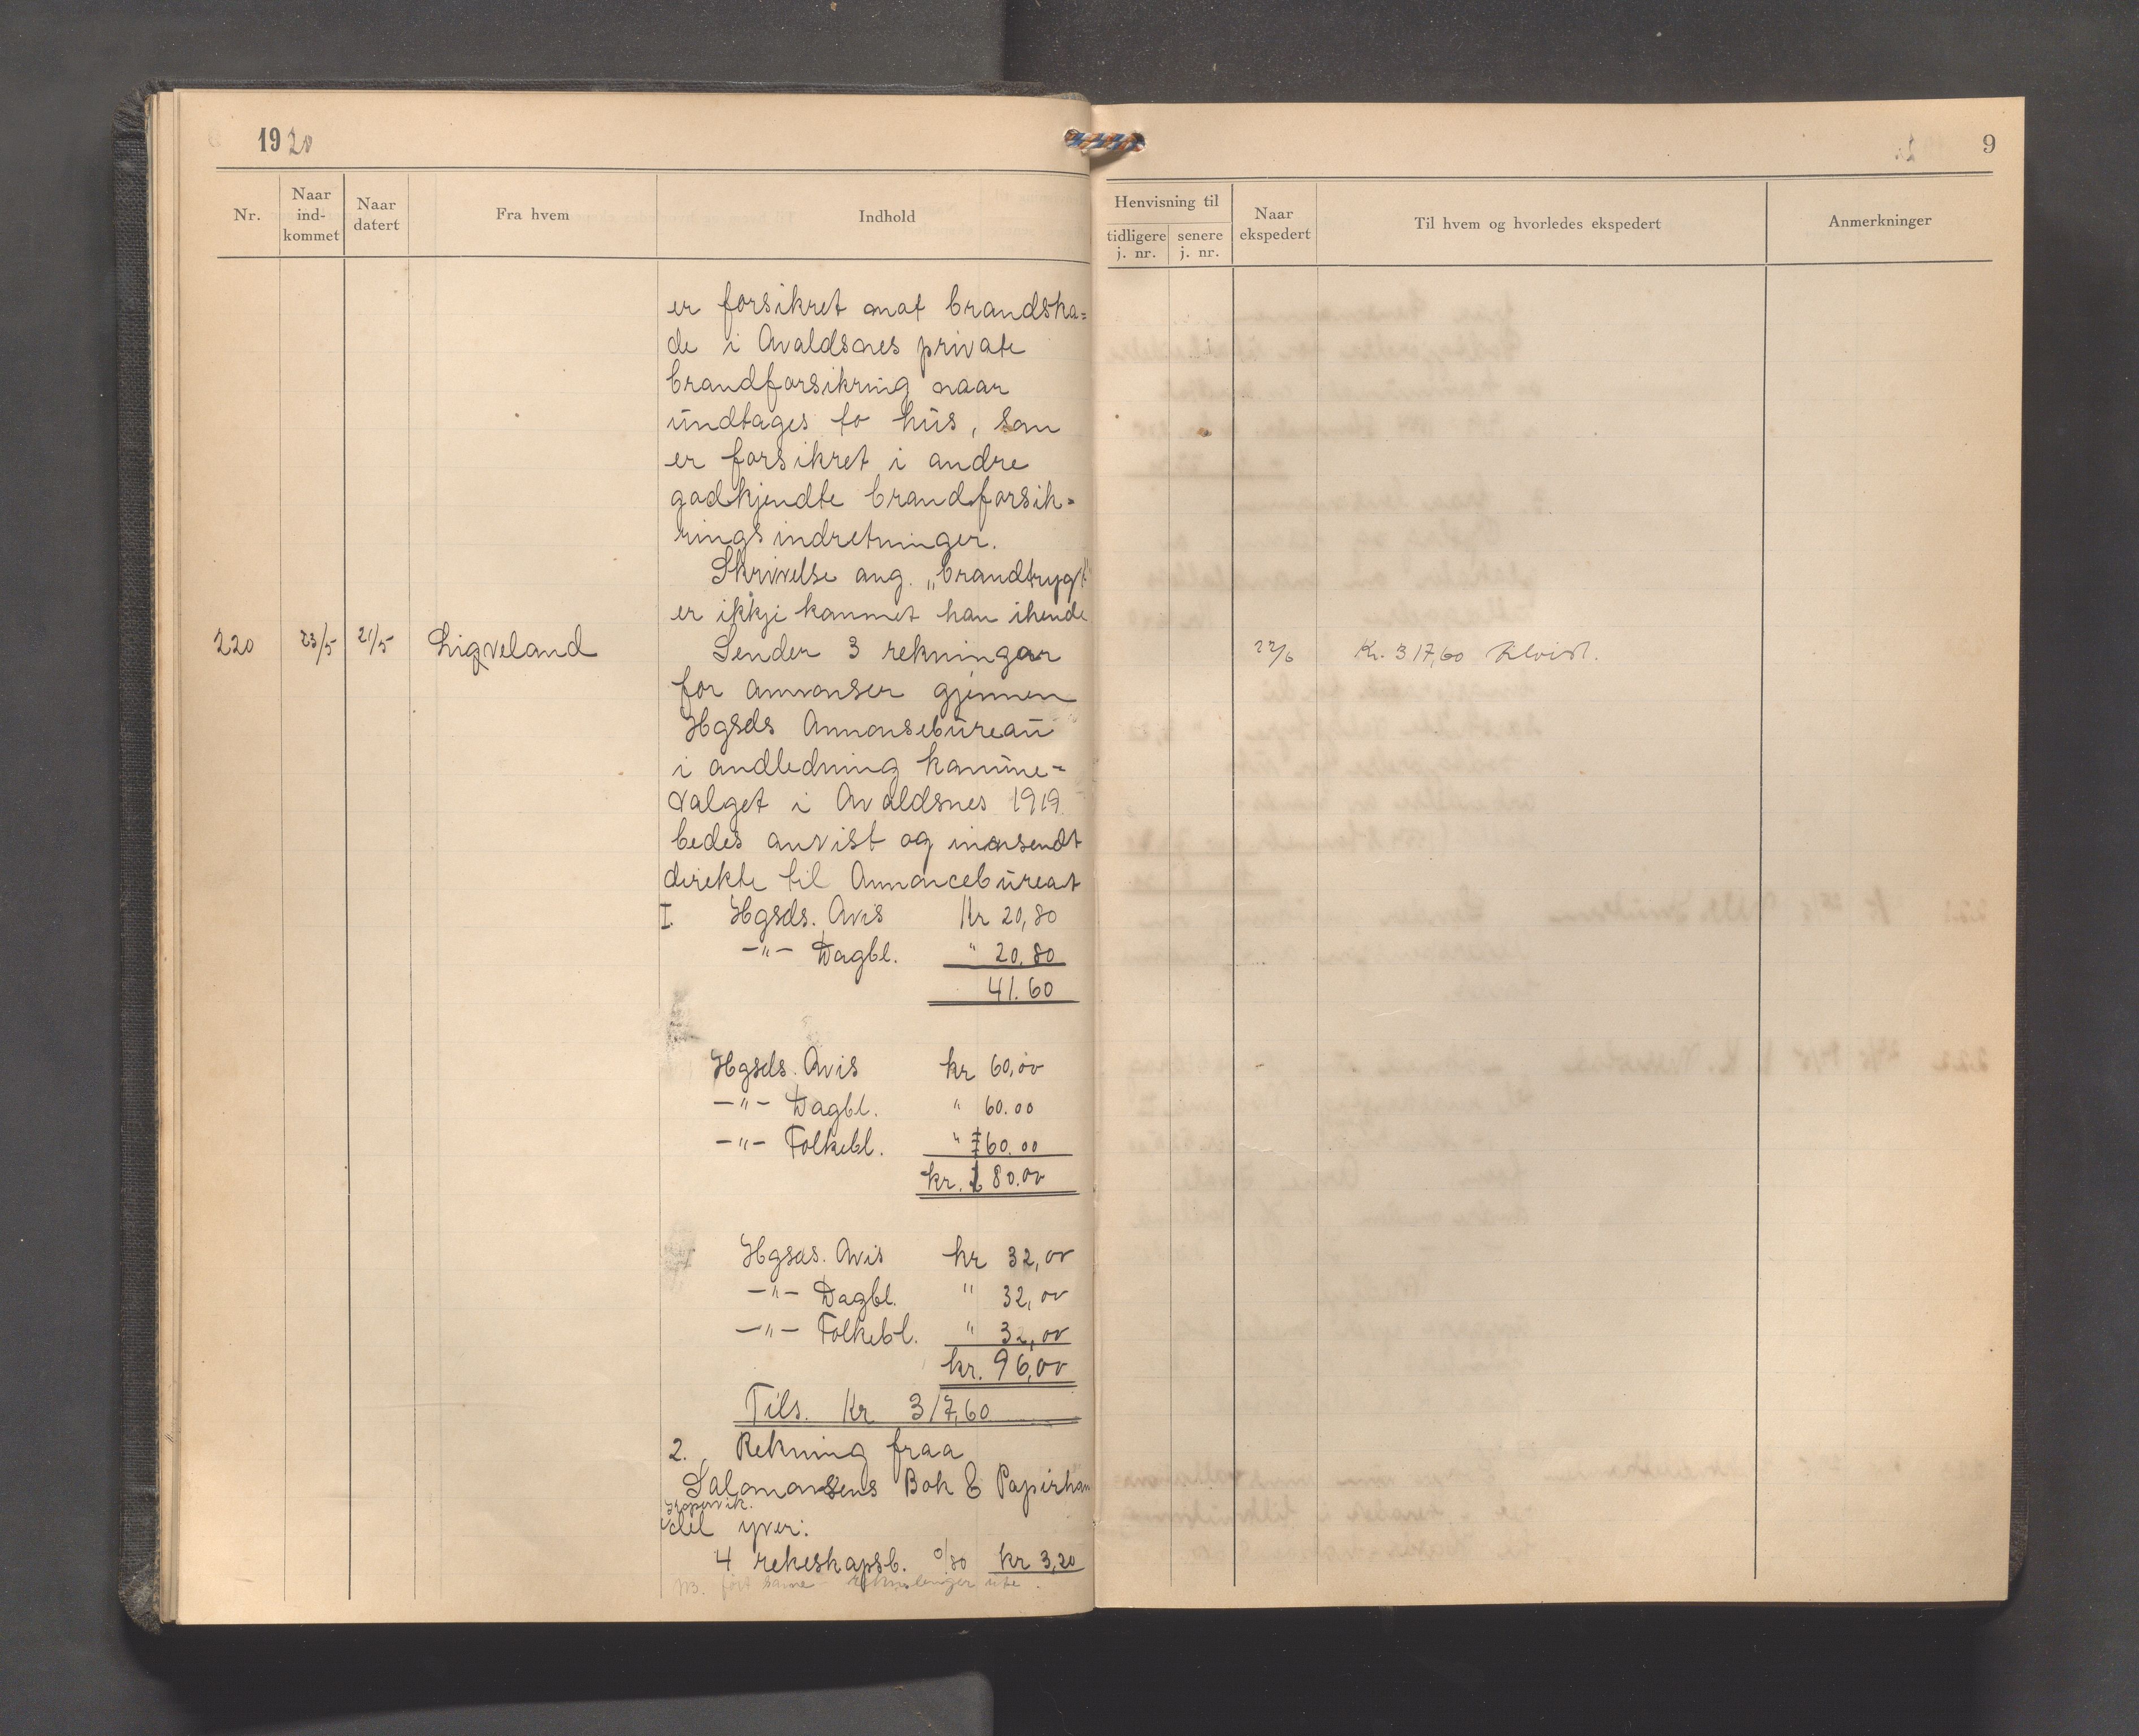 1920
9
Nr.
Naar ind-kommet
Naar datert
Fra hvem
Indhold
Henvisning til
tidligere j. nr.
senere j. nr.
Naar ekspedert
Til hvem og hvorledes ekspedert
Anmerkninger
er forsikret mot brandska=
de i Avaldsnes private
brandforsikring naar
undtages to hus, som
er forsikret i andre
godkjendte brandforsik=
ringsindretninger.
Skrivelse ang. „brandtrygt"
er ikkje kommet han ihende
220 23/5 21/5 Ligveland Sender 3 rekningar 22/6 Kr. 317,60
for annonser gjennem
Hgsds Annonsebureau
i andledning komune=
valget i Avaldsnes 1919.
bedes anvist og innsendt
direkte til Annoncebureat
I. Hgsds. Avis Kr 20,80
—"— Dagbl. " 20,80
41.60
Hgsds. Avis kr 60,00
—"— Dagbl. " 60.00
—"— Folkebl. " 60.00
kr. 180.00
Hgsds. Avis kr 32,00
—"— Dagbl. " 32,00
—"— Folkebl. " 32,00
kr. 96,00
Tils. Kr 317,60
2. Rekning fraa
Salomonsens Bok & Papirhan
Kopervik.
del yver:
4 rekeskapsb. 0/80 kr 3,20
NB.